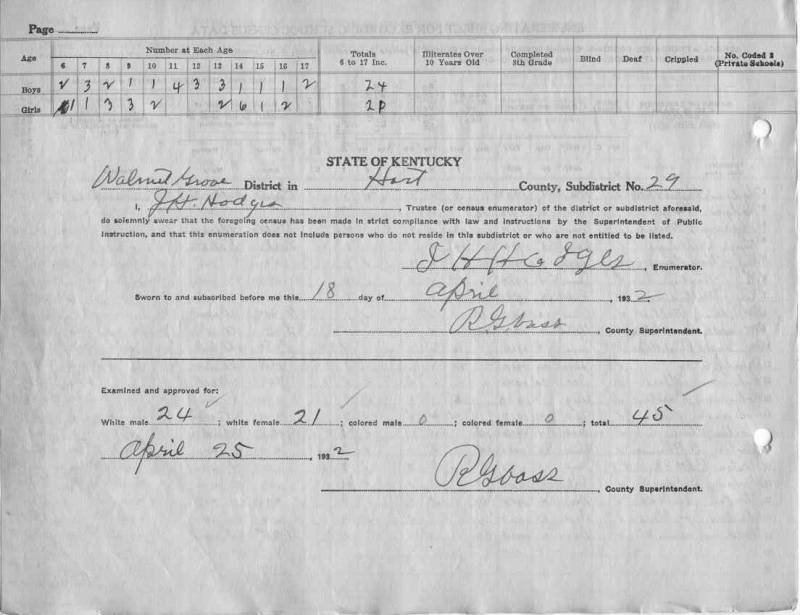 Page
Age Number at Each Age Totals 6 to 17 Inc. Illiterates Over 10 Years Old Completed 8th Grade Blind Deaf Crippled No. Coded 2 (Private Schools)
6 7 8 9 10 11 12 13 14 15 16 17
Boys 2 3 2 1 1 4 3 3 1 1 1 2 24
Girls 1 1 3 3 2 2 6 1 2
STATE OF KENTUCKY
Walnut Grove District in Hart County, Subdistrict No. 29
I, J.H. Hodges, Trustee (or census enumerator) of the district or subdistrict aforesaid,
do solemnly swear that the foregoing census has been made in strict compliance with law and instructions by the Superintendent of Public
Instruction, and that this enumeration does not include persons who do not reside in this subdistrict or who are not entitled to be listed.
J H Hodges, Enumerator.
Sworn to and subscribed before me this 18 day of April, 1932
R G Vass, County Superintendent.
Examined and approved for:
White male 24; white female 21; colored male 0; colored female 0; total 45
April 25, 1932
R G Vass, County Superintendent.